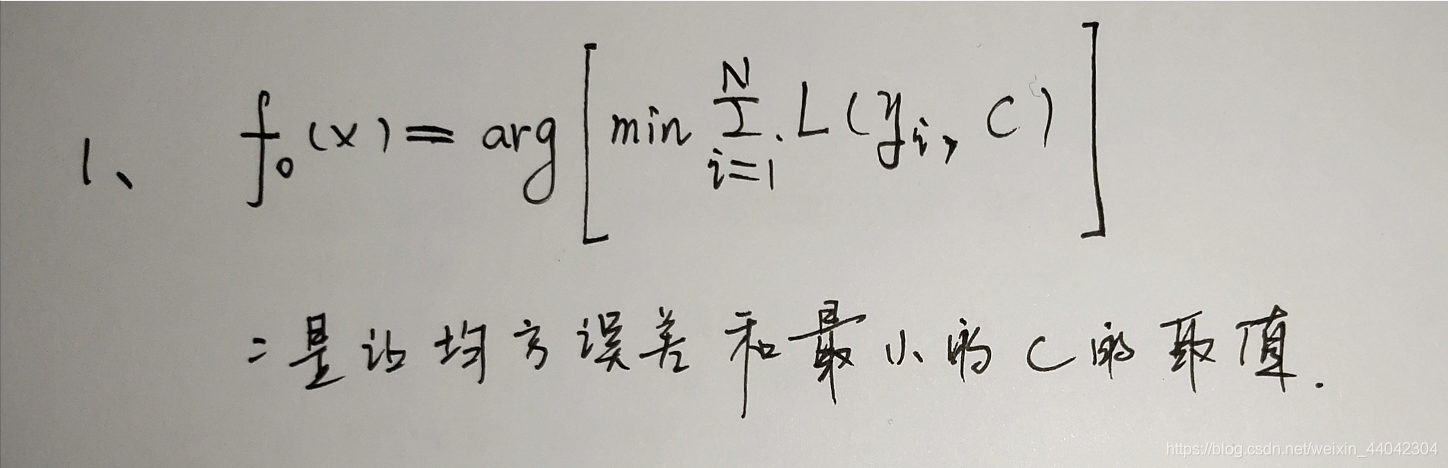 1、 f₀(x) = arg [ min Σᵢ₌₁ᴺ L(yᵢ, C) ]
= 是让均方误差和最小的C的取值.
https://blog.csdn.net/weixin_44042304